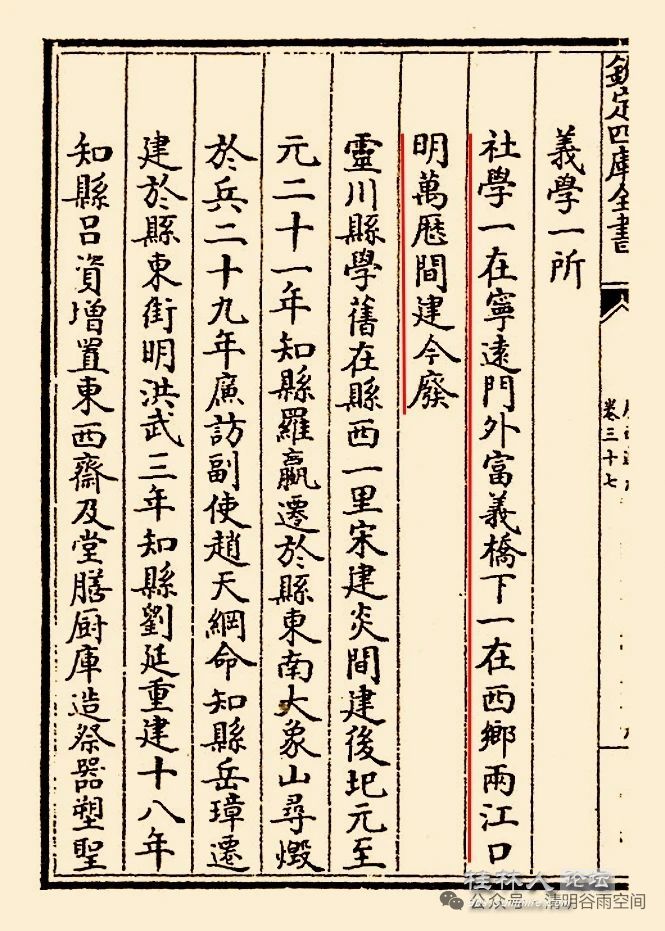 欽定四庫全書
卷三十七
義學一所
社學一在寧遠門外富義橋下一在西鄉兩江口
明萬厯間建今廢
靈川縣學舊在縣西一里宋建炎間建後圮元至
元二十一年知縣羅嬴遷於縣東南大象山尋燬
於兵二十九年廣訪副使趙天綱命知縣岳璋遷
建於縣東街明洪武三年知縣劉延重建十八年
知縣呂資增置東西齋及堂膳厨庫造祭器塑聖
桂林人论坛
公众号 · 清明谷雨空间